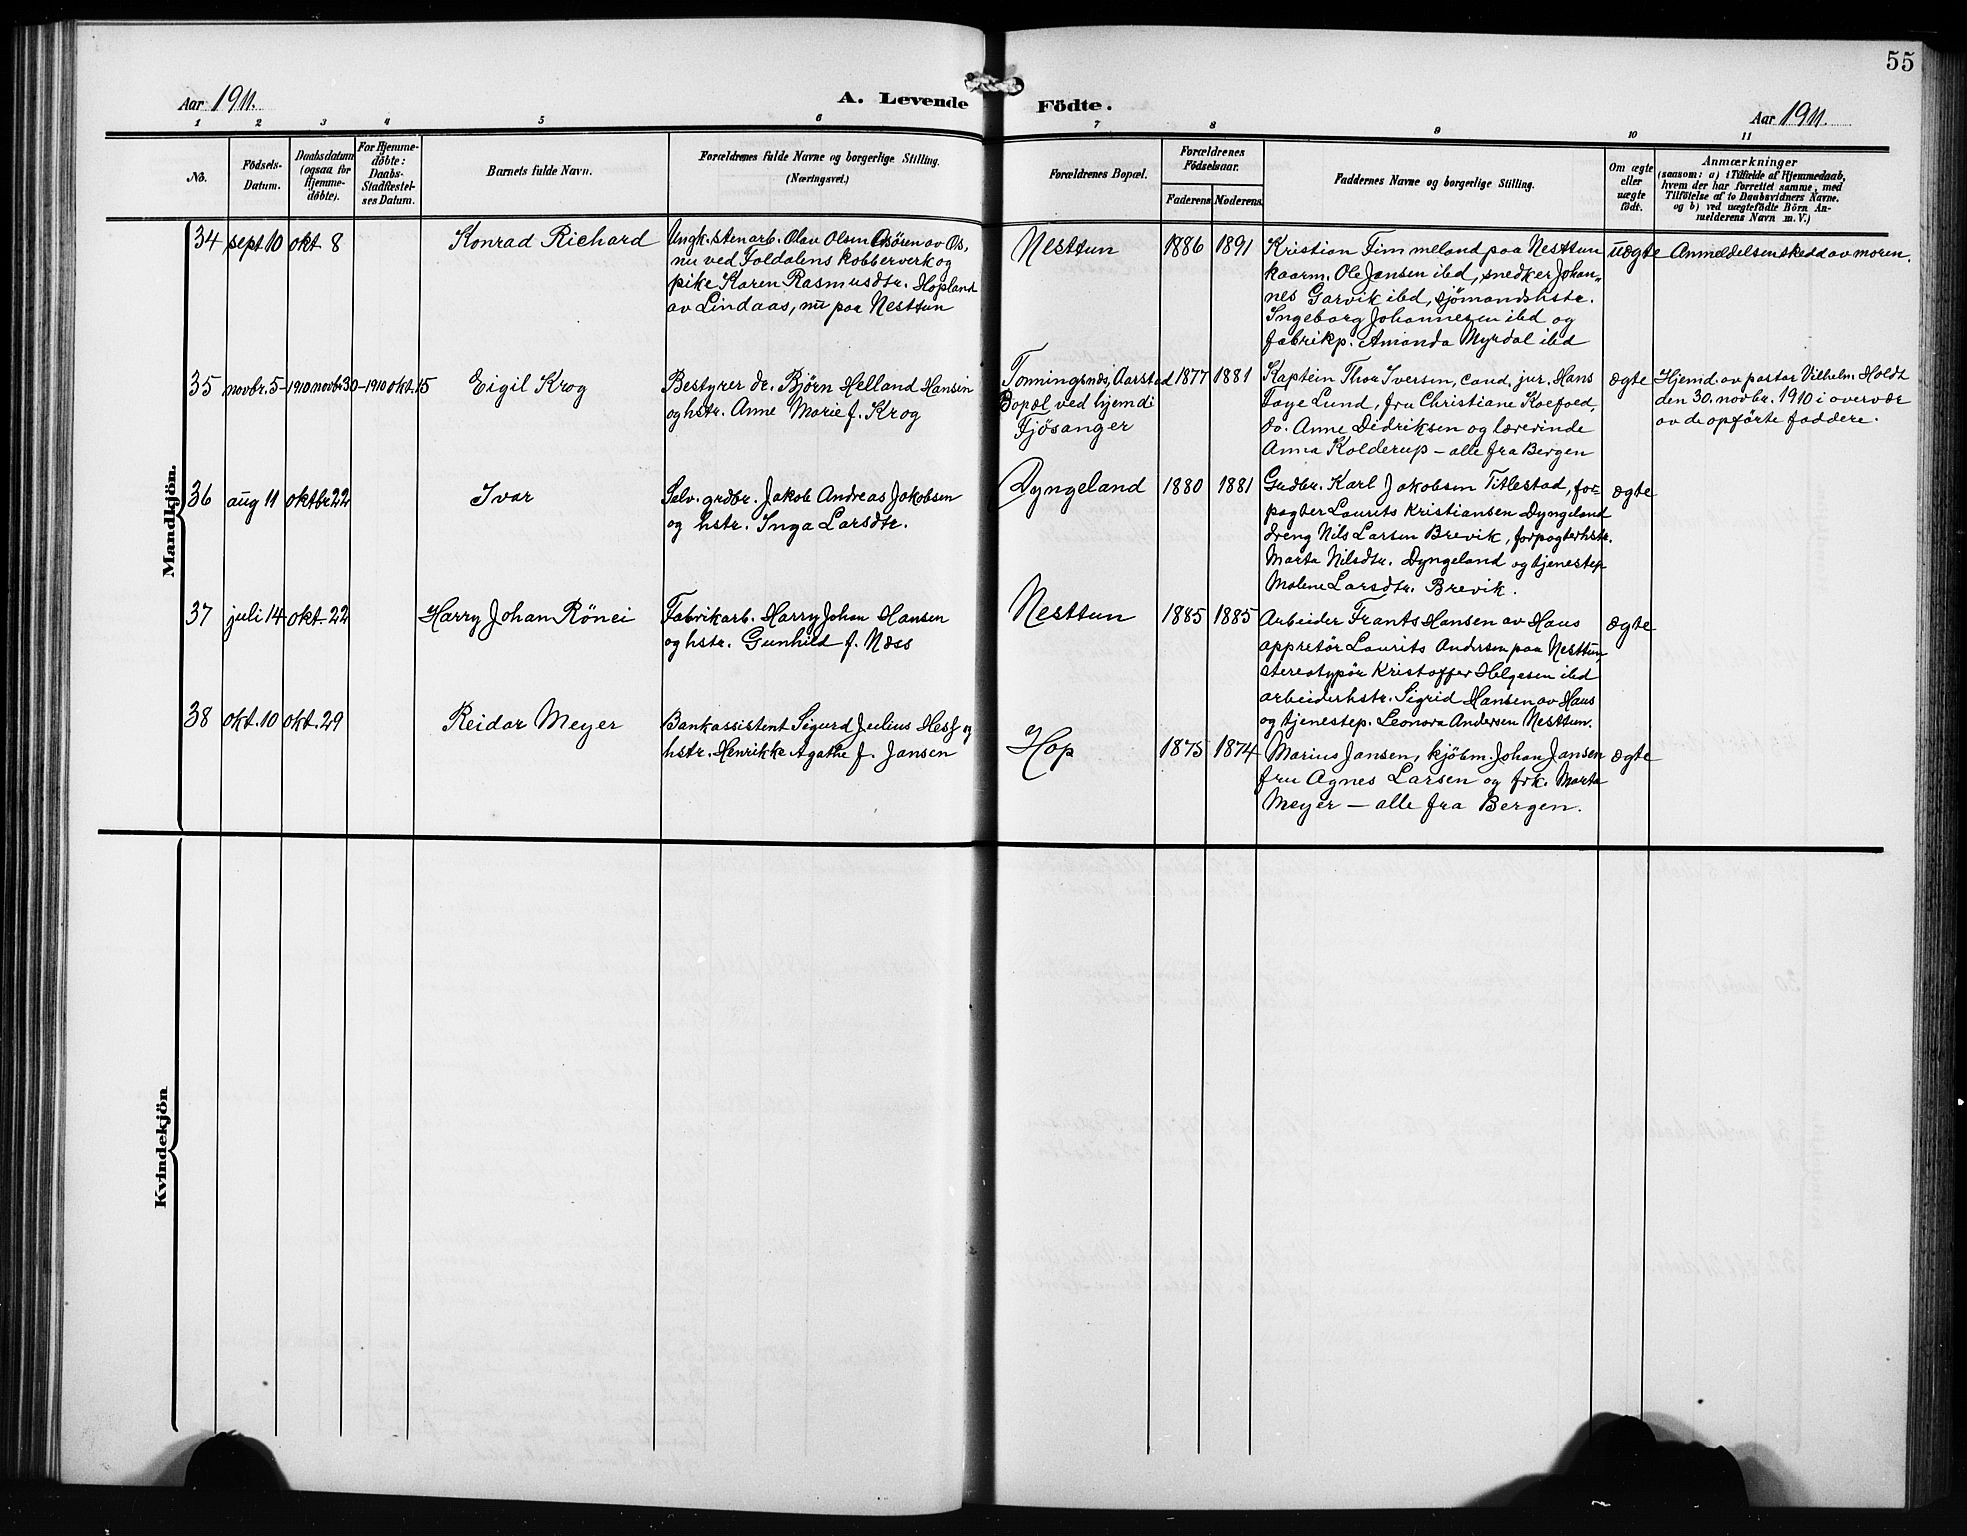 55
Aar 1911.
A. Levende Födte.
Aar 1911.
1 2 3 4 5 6 7 8 9 10 11
No.
Födsels-
Datum.
Daabsdatum
(ogsaa for
Hjemme-
döbte).
For Hjemme-
döbte:
Daabs-
Stadfæstel-
ses Datum.
Barnets fulde Navn.
Forældrenes fulde Navne og borgerlige Stilling.
(Næringsvei.)
Forældrenes Bopæl.
Forældrenes
Födselsaar.
Faderens
Moderens
Faddernes Navne og borgerlige Stilling.
Om ægte
eller
uægte
födt.
Anmærkninger
(saasom: a) i Tilfælde af Hjemmedaab,
hvem der har forrettet samme, med
Tilföielse af to Daabsvidners Navne.
og b) ved uægtefödte Börn An-
melderens Navn m. V.)
Mandkjön.
34 sept. 10 okt 8
Konrad Richard
Ungk. stenarb. Olav Olsen Åsören av Os,
nu ved Foldalens kobberverk og
pike Karen Rasmusdtr. Hopland
av Lindaas, nu paa Nesttun
Nesttun
1886 1891
Kristian Fimmeland paa Nesttun
kaarm. Ole Jansen ibd, snedker Johan-
nes Garvik ibd, sjömandshstr.
Ingeborg Johannesen ibd og
fabrikp. Amanda Myrdal ibd
uægte
Anmeldelsen skedd av moren.
35 novbr. 5-1910 novbr 30-1910 okt. 15
Eigil Krog
Bestyrer dr. Bjørn Helland Hansen
og hstr. Anne Marie f. Krog
Tonningsnes, Aarstad
Bopæl ved hjemd:
Fjösanger
1877 1881
Kaptein Thor Iversen, cand. jur. Hans
Faye Lund, fru Christiane Koefoed,
do. Anne Didriksen og lærerinde
Anna Kolderup - alle fra Bergen
ægte
Hjemd. av pastor Vilhelm Holdt
den 30. novbr. 1910 i overvær
av de opförte faddere.
36 aug 11 oktbr 22
Ivar
Selv. grdbr. Jakob Andreas Jakobsen
og hstr. Inga Larsdtr.
Dyngeland
1880 1881
Grdbr. Karl Jakobsen Titlestad, for-
pagter Laurits Kristiansen Dyngeland
dreng Nils Larsen Brevik, forpagterhstr.
Marta Nilsdtr. Dyngeland og tjenestep
Malene Larsdtr. Brevik.
ægte
37 juli 14 okt. 22
Harry Johan Rönei
Fabrikarb. Harry Johan Hansen
og hstr. Gunhild f. Næss
Nesttun
1885 1885
Arbeider Frants Hansen av Haus
appretör Laurits Andersen paa Nesttun,
stereotypör Kristoffer Helgesen ibd
arbeiderhstr. Sigrid Hansen av Haus
og tjenestep. Leonora Andersen Nesttun.
ægte
38 okt. 10 okt. 29
Reidar Meyer
Bankassistent Sigurd Julius Hess og
hstr. Henrikke Agathe f. Jansen
Hop
1875 1874
Marius Jansen, kjöbm. Johan Jansen
fru Agnes Larsen og frk. Marta
Meyer — alle fra Bergen.
ægte
Kvindekjön